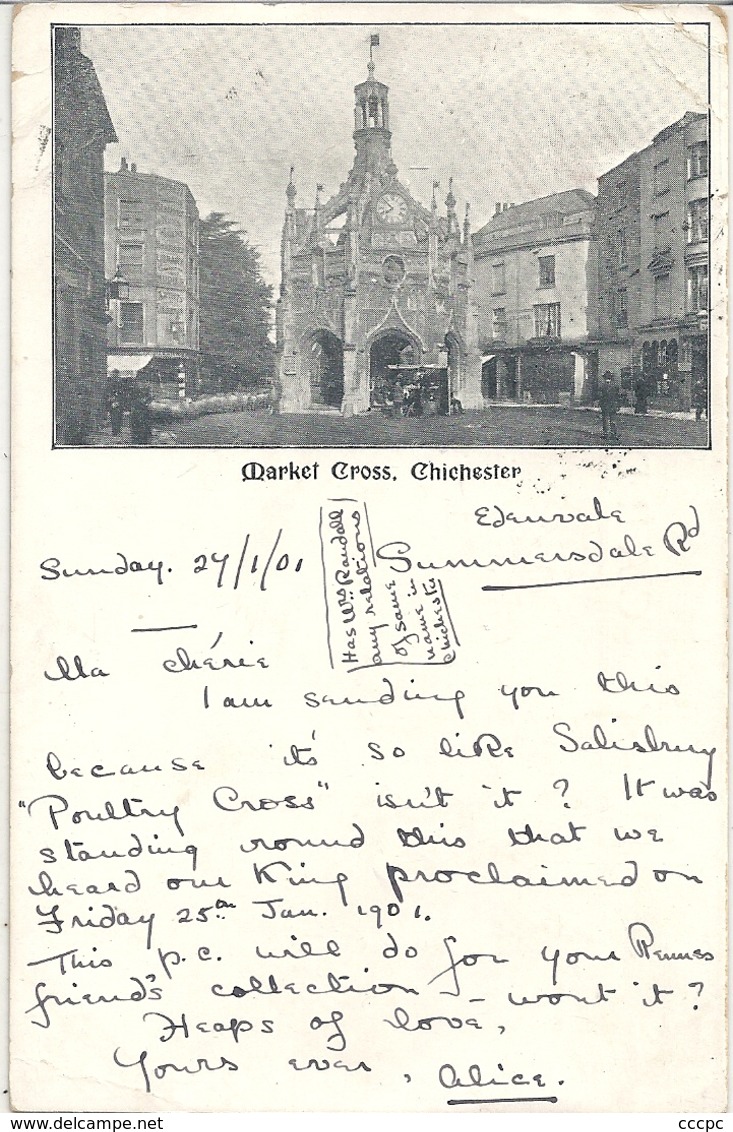 Market Cross, Chichester
Edenvale
Summersdale Rd
Sunday. 27/1/01
Has Mrs Randall
any relations
of same
name in
Chichester
Ma chérie
I am sending you this
because it's so like Salisbury
"Poultry Cross" isn't it? It was
standing round this that we
heard our King proclaimed on
Friday 25th Jan. 1901.
This p.c. will do for your Rennes
friend's collection - won't it?
Heaps of love,
Yours ever,
Alice.
cccpc